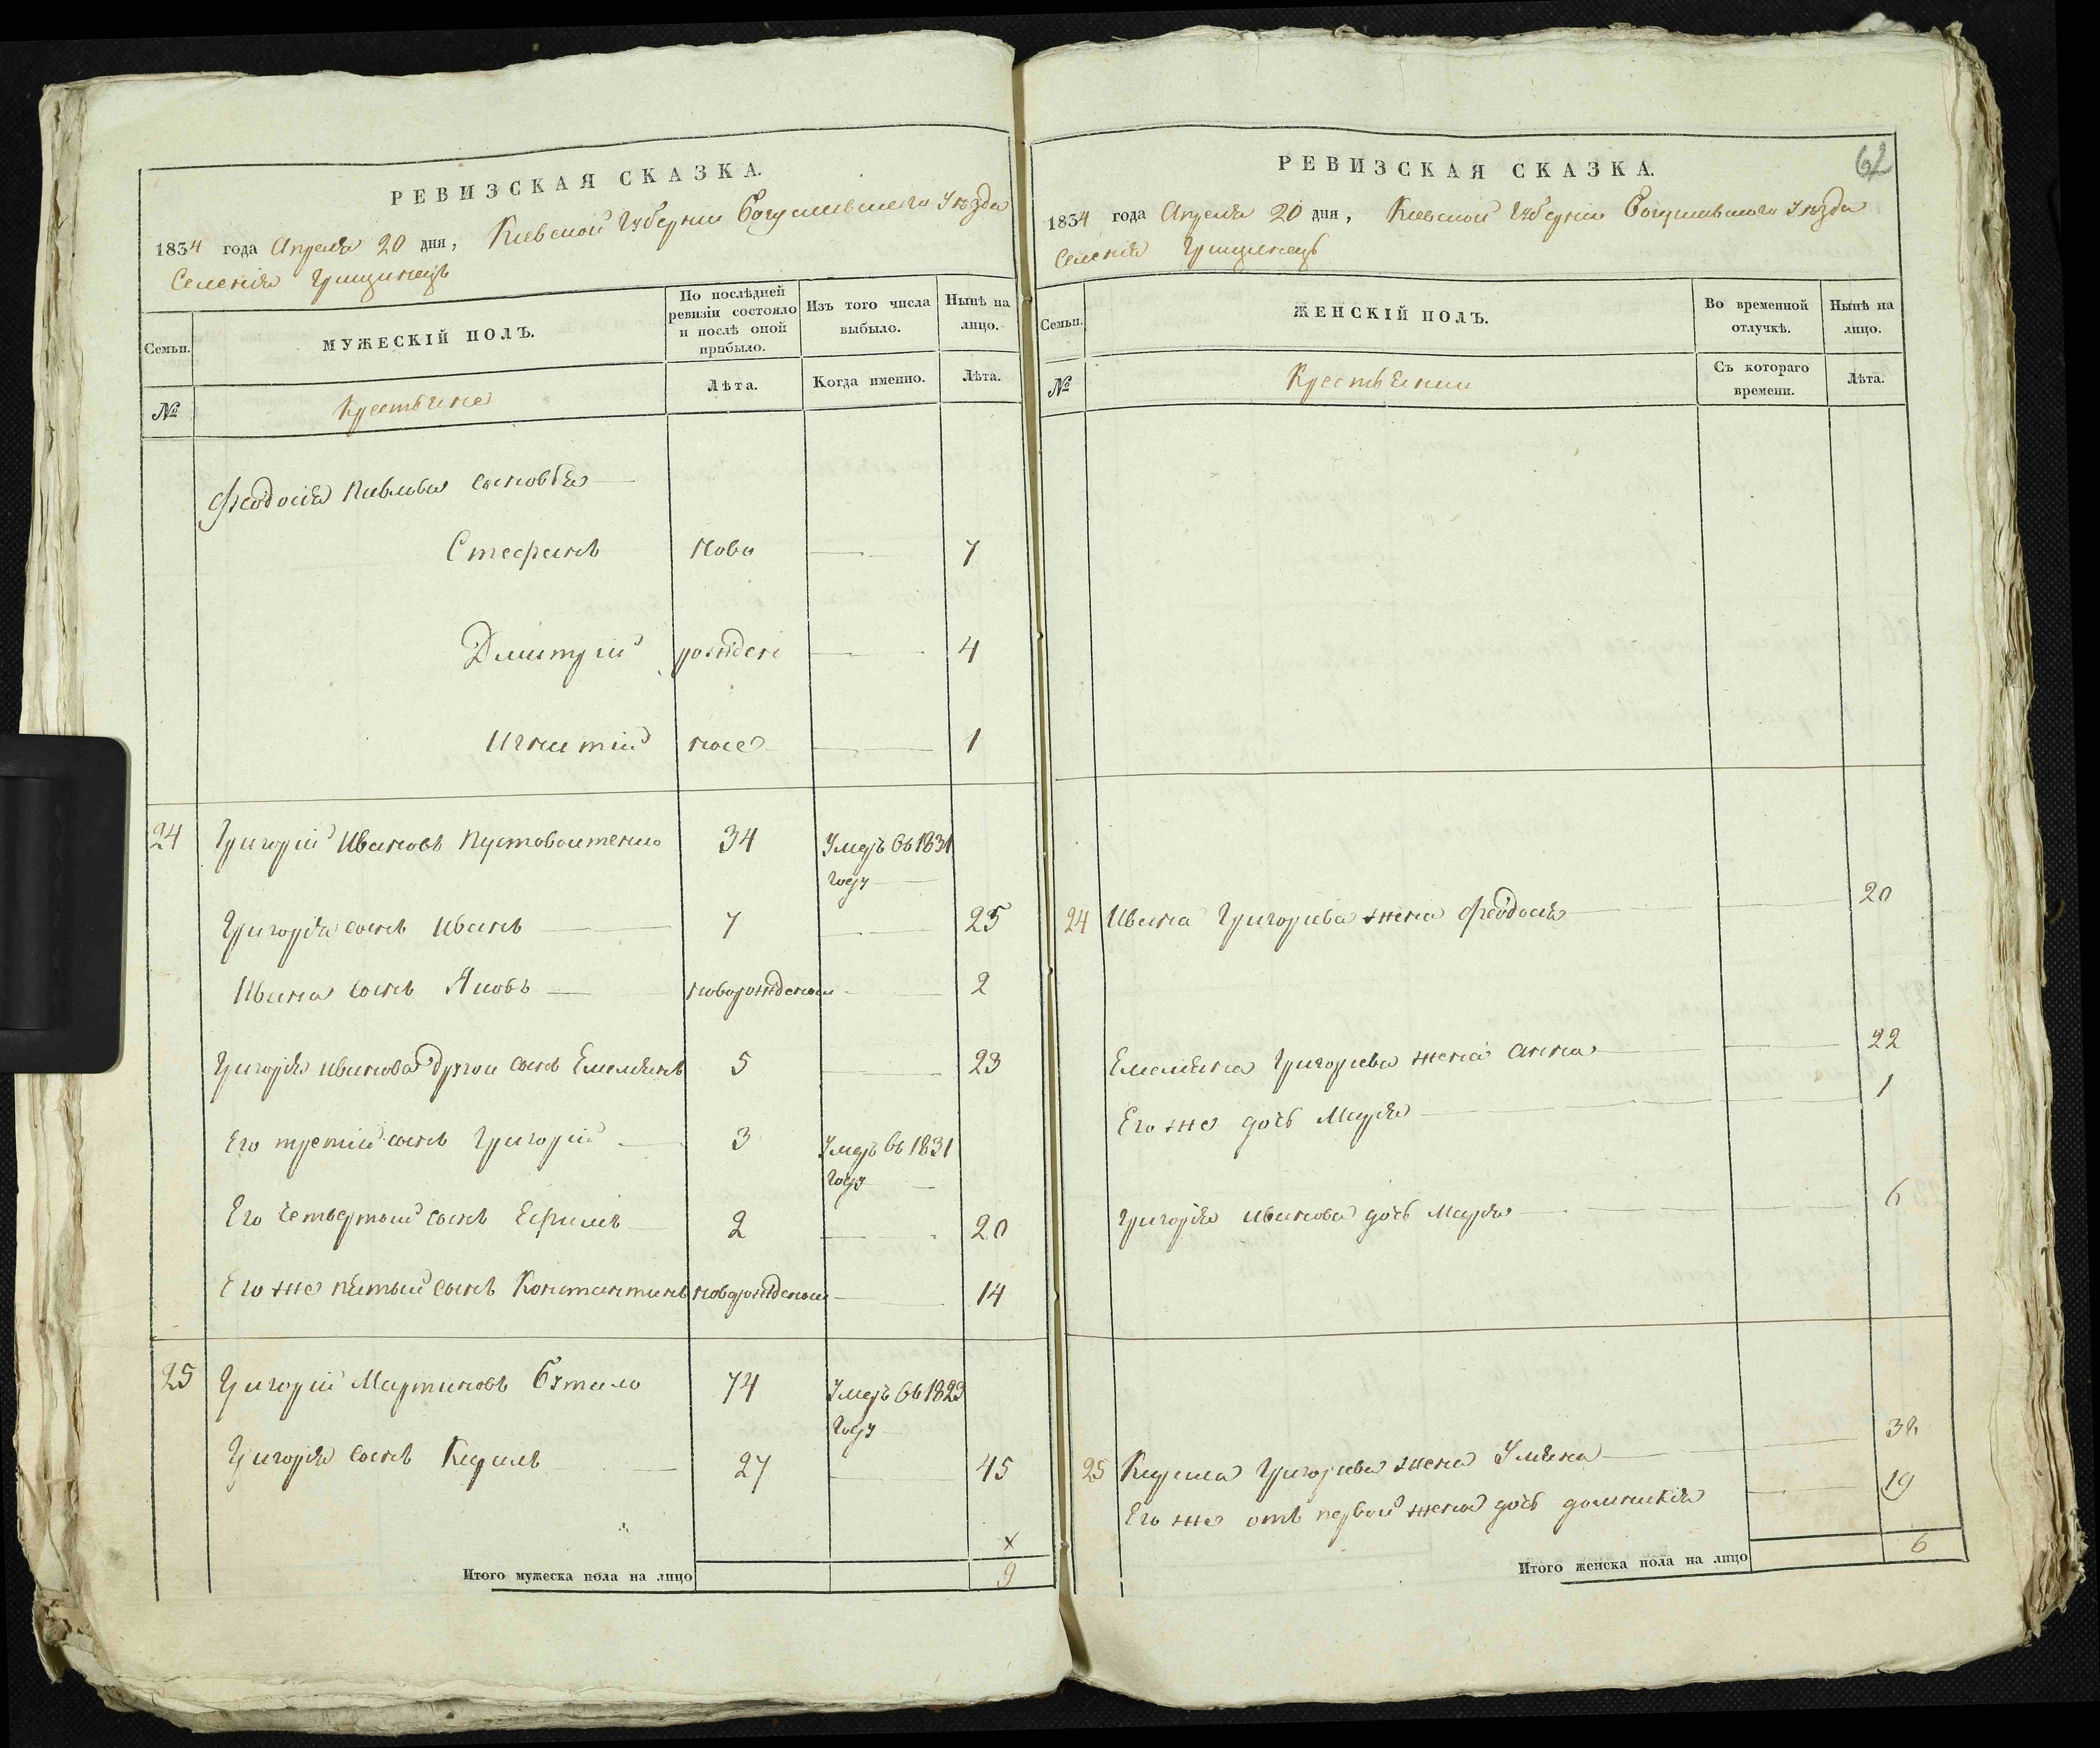 РЕВИЗСКАЯ СКАЗКА.
1834 года Апреля 20 дня, Киевской Губернии Богуславского Уезда
Селения Грищинецъ
Семьи.
МУЖЕСКІЙ ПОЛЪ.
По послѣдней ревизіи состояло и послѣ оной прибыло.
Изъ того числа выбыло.
Нынѣ на лицо.
№
Крестьяне
Лѣта.
Когда именно.
Лѣта.
Феодосія Павлова сыновья
Стефанъ ново 7
Дмитрій рожден 4
Игнатій ные 1
24 Григорій Ивановъ Пустовойтенко 34 Умеръ въ 1831
году
Григорія сынъ Иванъ 7 25
Ивана сынъ Яковъ новорожденый 2
Григорія Иванова другой сынъ Емельянъ 5 23
Его третій сынъ Григорій 3 Умеръ въ 1831
году
Его четвертый сынъ Ефимъ 2 20
Его же пятый сынъ Константинъ новорожденый 14
25 Григорій Мартиновъ 74 Умеръ въ 1823
году
Григорія сынъ Кирилъ 27 45
х
Итого мужеска пола на лицо 9
62
РЕВИЗСКАЯ СКАЗКА.
1834 года Апреля 20 дня, Киевской Губерніи Богуславского Уезда
Селенія Грищинецъ
Семьи.
ЖЕНСКІЙ ПОЛЪ.
Во временной отлучкѣ.
Нынѣ на лицо.
№
Крестьянки
Съ котораго времени.
Лѣта.
24 Ивана Григорьева жена Феодосія 20
Емельяна Григорьева жена Анна 22
Его же дочь Марія 1
Григорія Иванова дочь Марія 6
25 Кирила Григорьева жена Уляна 32
Его же отъ первой жены дочь Домникія 19
Итого женска пола на лицо 6